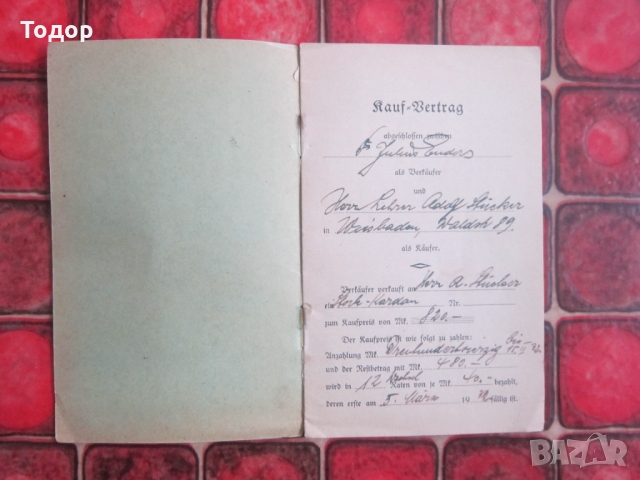 Тодор
Kauf-Vertrag
abgeschlossen zwischen
Julius Enders
als Verkäufer
und
Herr Lehrer Adolf Stücker
in Wiesbaden, Waldstr 89.
als Käufer.
Verkäufer verkauft an Herr A. Stücker
Nr.
zum Kaufpreis von Mk. 820.—
Der Kaufpreis ist wie folgt zu zahlen:
Anzahlung Mk.
und der Restbetrag mit Mk. 480.—
wird in 12 Raten von je Mk 40.— bezahlt,
deren erste am 5. März 19 fällig ist.
BAZAR